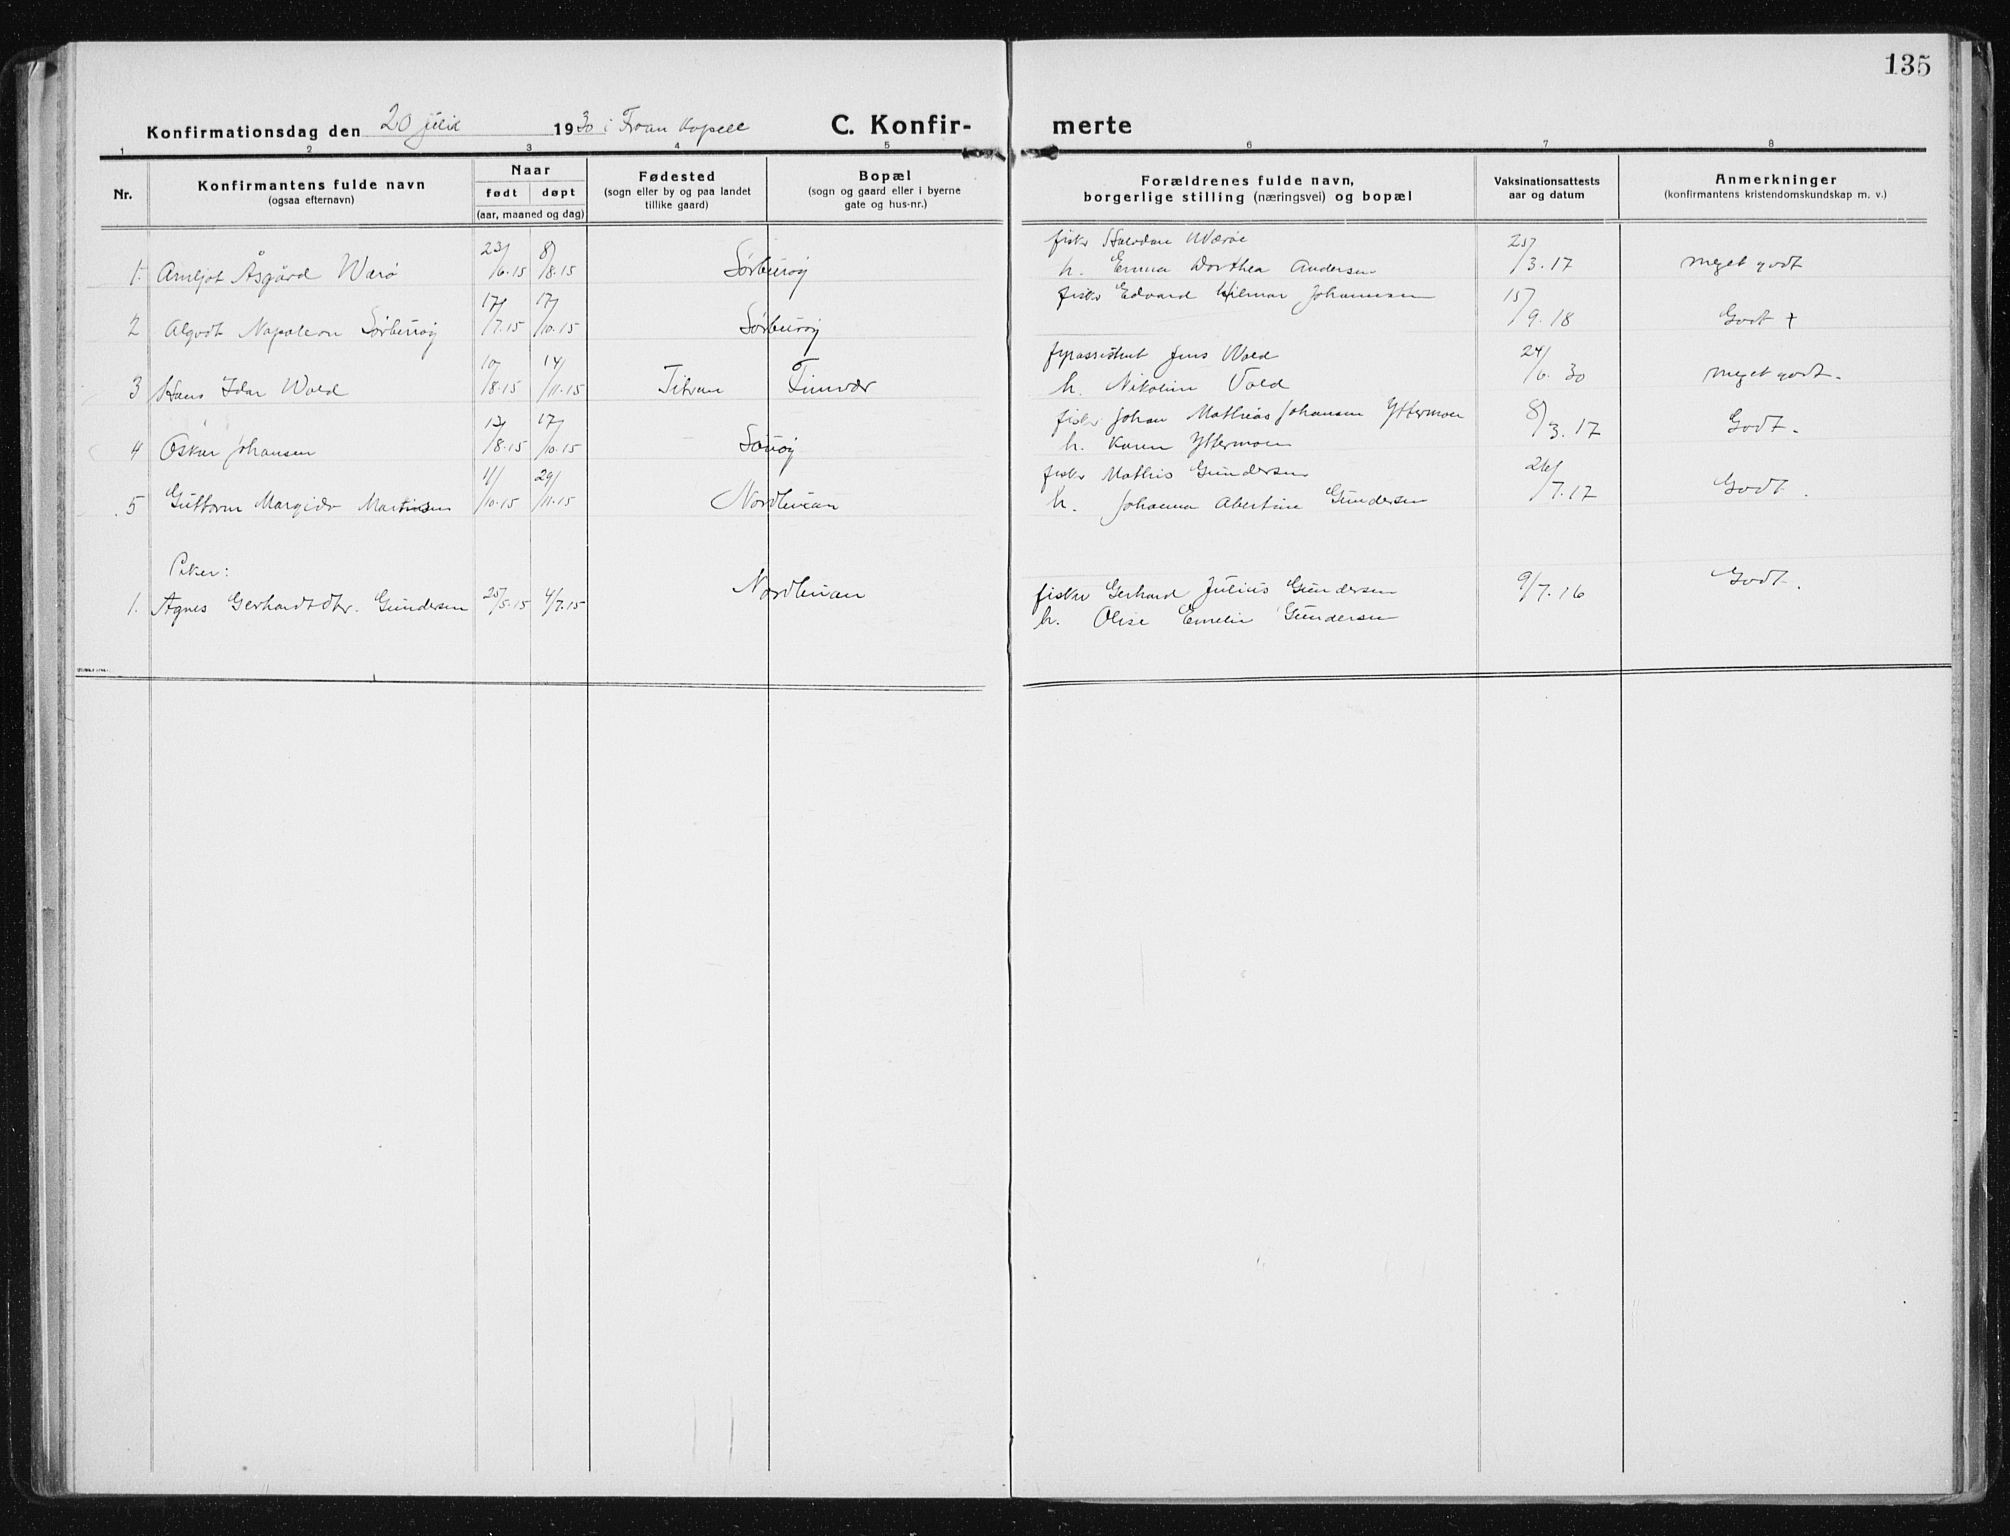 135
Konfirmationsdag den 20 juli 1930 i Froan Kapell C. Konfirmerte
1 2 3 4 5 6 7 8
Nr. Konfirmantens fulde navn (ogsaa efternavn) Naar født døpt (aar, maaned og dag) Fødested (sogn eller by og paa landet tillike gaard) Bopæl (sogn og gaard eller i byerne gate og hus-nr.) Forældrenes fulde navn, borgerlige stilling (næringsvei) og bopæl Vaksinationsattests aar og datum Anmerkninger (konfirmantens kristendomskundskap m. v.)
fisker Halvdan Værøe
1. Arnljot Åsgård Værø 23/6.15 8/8.15 Sørburøy h. Emma Dorthea Andersen 25/3.17 meget godt
fisker Edvard Hilmar Johannesen
2 Algodt Napoleon Sørburøy 17/7.15 17/10.15 Sørburøy 15/9.18 Godt +
fyrassistent Jens Wold
3 Hans Idar Wold 10/8.15 14/11.15 Titran Finnvær h. Nikoline Vold 24/6.30 meget godt.
fisker Johan Mathias Johansen Yttermoen
4 Oskar Johansen 13/8.15 17/10.15 Sauøy h. Karen Yttermoen 8/3.17 Godt.
fisker Mathis Gundersen
5 Guttorm Margido Martinsen 11/10.15 29/11.15 Nordbuan h. Johanna Abertine Gundersen 26/7.17 Godt.
Piker:
1. Agnes Gerhardtdtr. Gundersen 25/5.15 4/7.15 Nordbuan fisker Gerhard Julius Gundersen 9/7.16 Godt.
h. Olise Emelie Gundersen